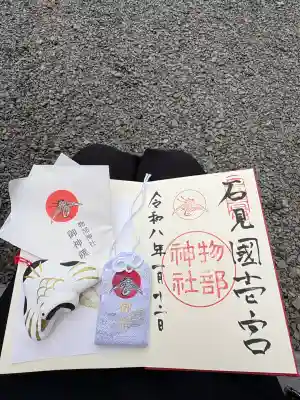 石見國壱宮
物部
神社
令和八年一月十一日
物部神社
御神護